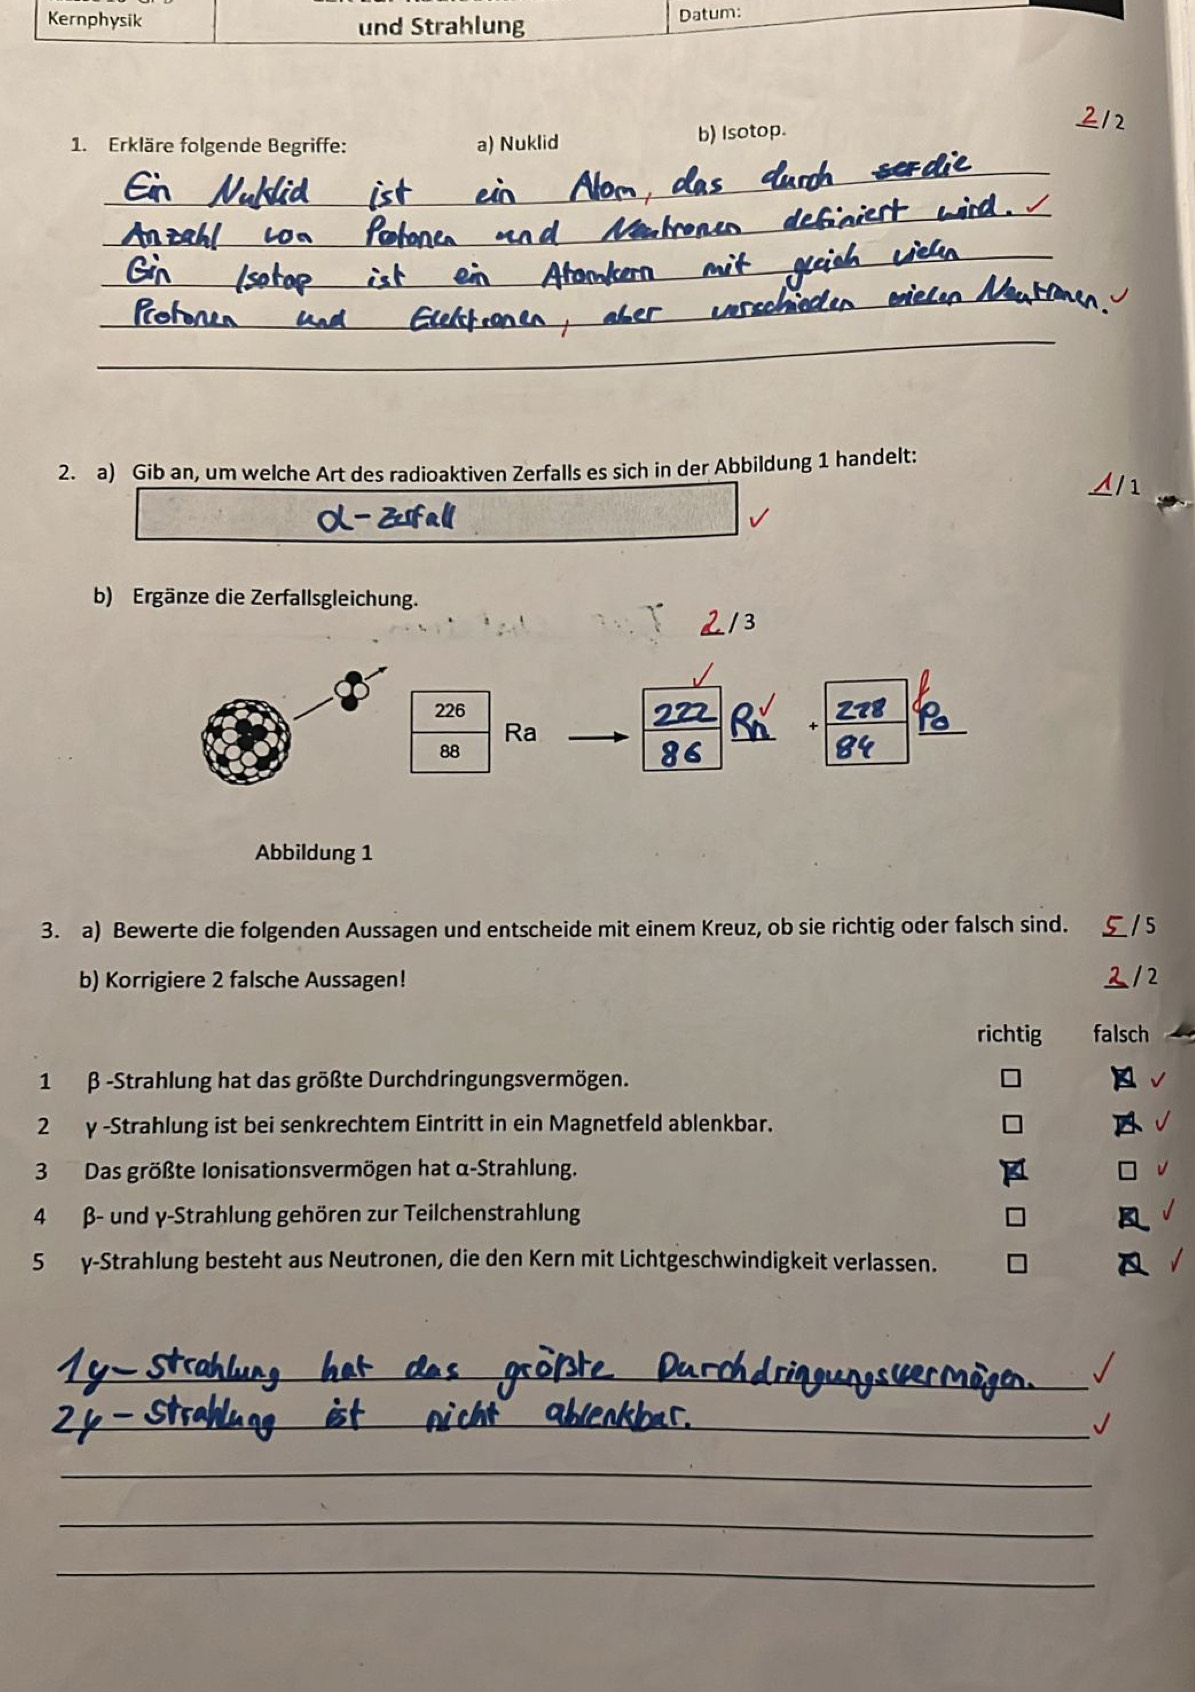 Kernphysik
und Strahlung
Datum:
2/2
1. Erkläre folgende Begriffe: a) Nuklid b) Isotop.
Ein Nuklid ist ein Atom, das durch die
Anzahl von Protonen und Neutronen definiert wird. ✓
Ein Isotop ist ein Atomkern mit gleich vielen
Protonen und Elektronen, aber verschieden vielen Neutronen. ✓
2. a) Gib an, um welche Art des radioaktiven Zerfalls es sich in der Abbildung 1 handelt:
1/1
α-Zerfall ✓
b) Ergänze die Zerfallsgleichung.
2/3
226
88
Ra
222
86
Rn
+
84
Po
Abbildung 1
3. a) Bewerte die folgenden Aussagen und entscheide mit einem Kreuz, ob sie richtig oder falsch sind. 5/5
b) Korrigiere 2 falsche Aussagen! 2/2
richtig falsch
1 β -Strahlung hat das größte Durchdringungsvermögen. ☐ ☒ ✓
2 γ -Strahlung ist bei senkrechtem Eintritt in ein Magnetfeld ablenkbar. ☐ ☒ ✓
3 Das größte Ionisationsvermögen hat α-Strahlung. ☒ ☐ ✓
4 β- und γ-Strahlung gehören zur Teilchenstrahlung ☐ ☒ ✓
5 γ-Strahlung besteht aus Neutronen, die den Kern mit Lichtgeschwindigkeit verlassen. ☐ ☒ ✓
1 γ-Strahlung hat das größte Durchdringungsvermögen. ✓
2 γ-Strahlung ist nicht ablenkbar. ✓